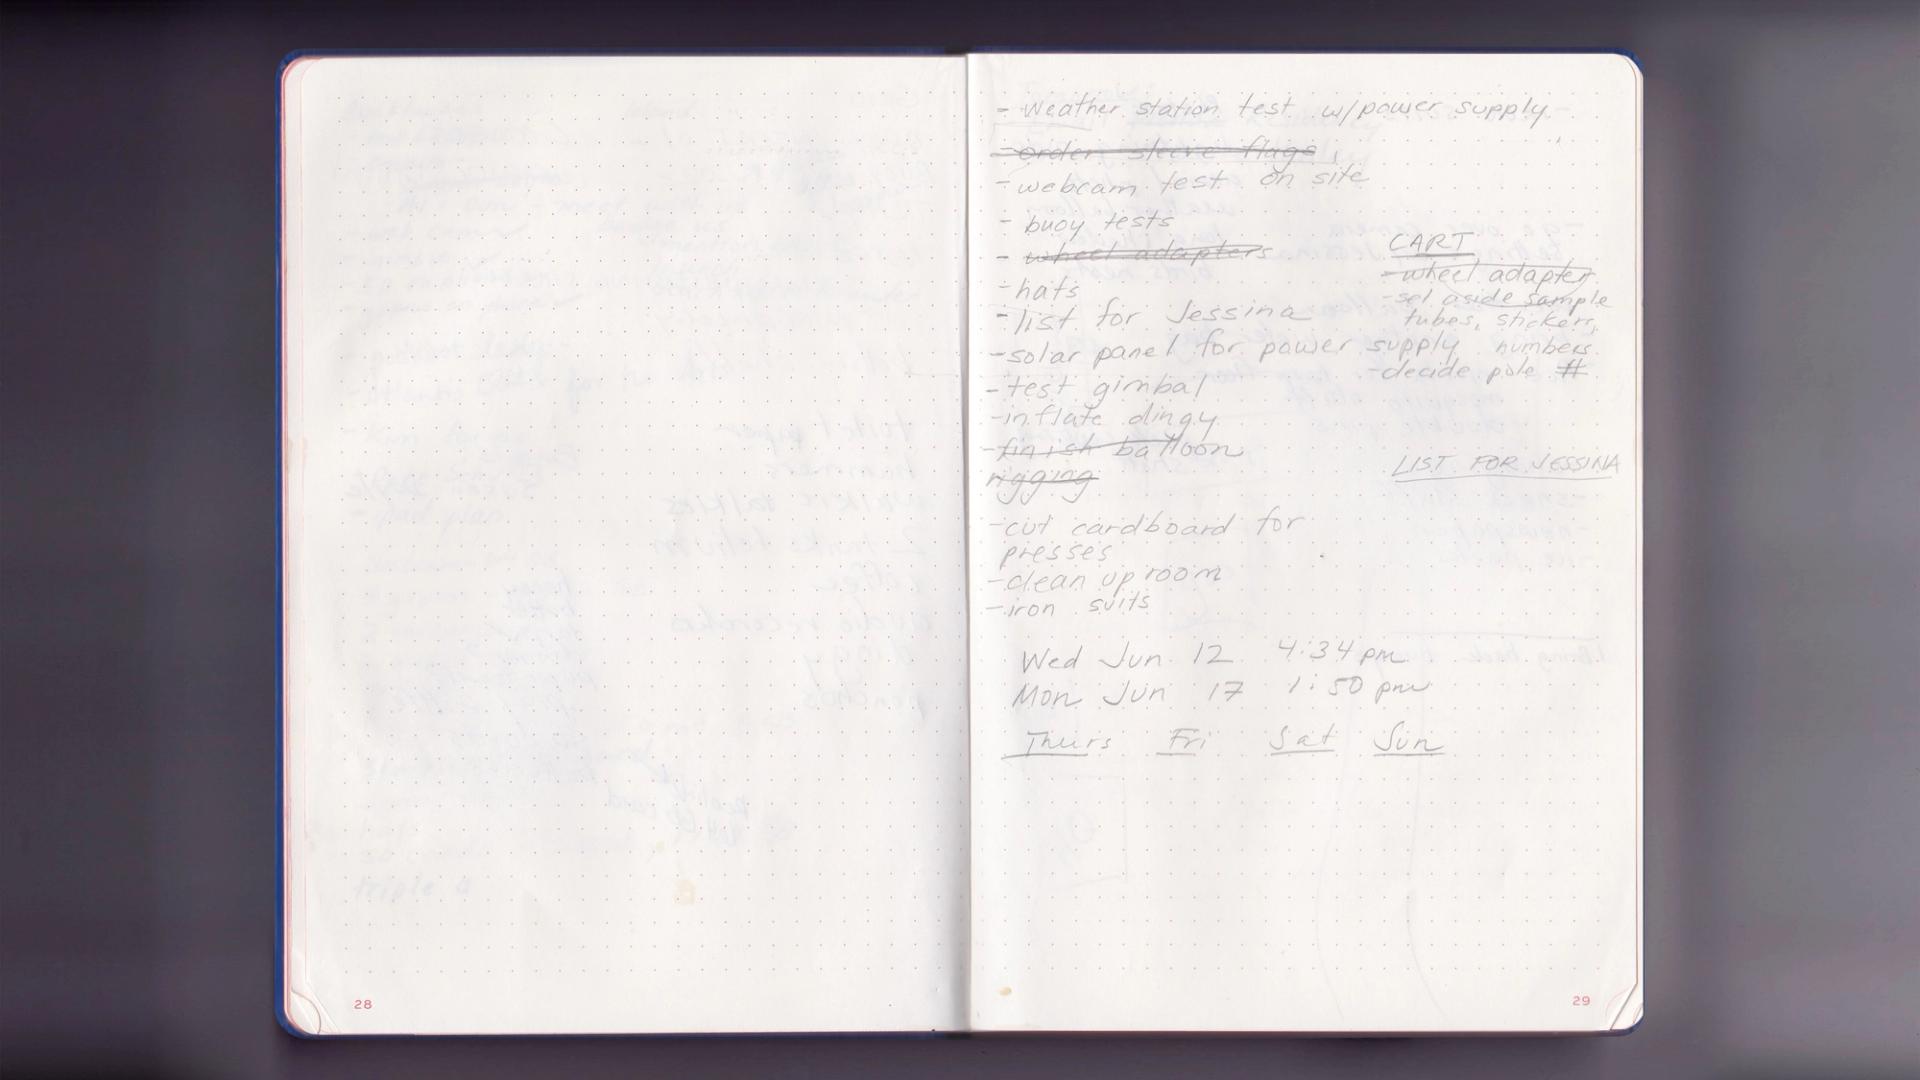 - Weather station test w/power supply
- order sleeve flags
- webcam test on site
- buoy tests
- wheel adapters
- hats
- list for Jessina
- solar panel for power supply
- test gimbal
- inflate dingy
- finish balloon
rigging
- cut cardboard for
presses
- clean up room
- iron suits
CART
- wheel adapter
- set aside sample
tubes, stickers,
numbers
- decide pole #
LIST FOR JESSINA
Wed Jun 12 4:34 pm
Mon Jun 17 1:50 pm
Thurs Fri Sat Sun
28
29